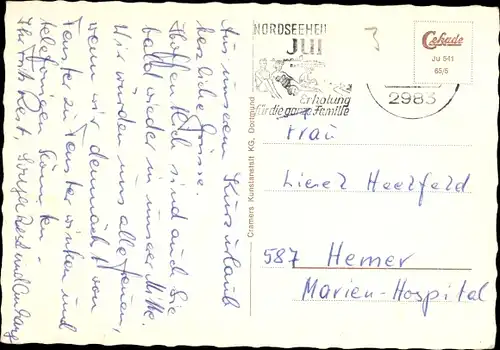 Aus unserem Kurzurlaub
herzliche Grüsse.
Hoffentlich sind auch Sie
bald wieder in unserer Mitte.
Wir würden uns alle freuen,
wenn wir demnächst von
Fenster zu Fenster winken und
telefonieren können.
Ihr
Cramers Kunstanstalt KG, Dortmund
NORDSEEHEIL
JUI
Erholung
für die ganze Familie
2983
Cekade
JU 541
65/5
Frau
Liesel Heerfeld
587 Hemer
Marien-Hospital